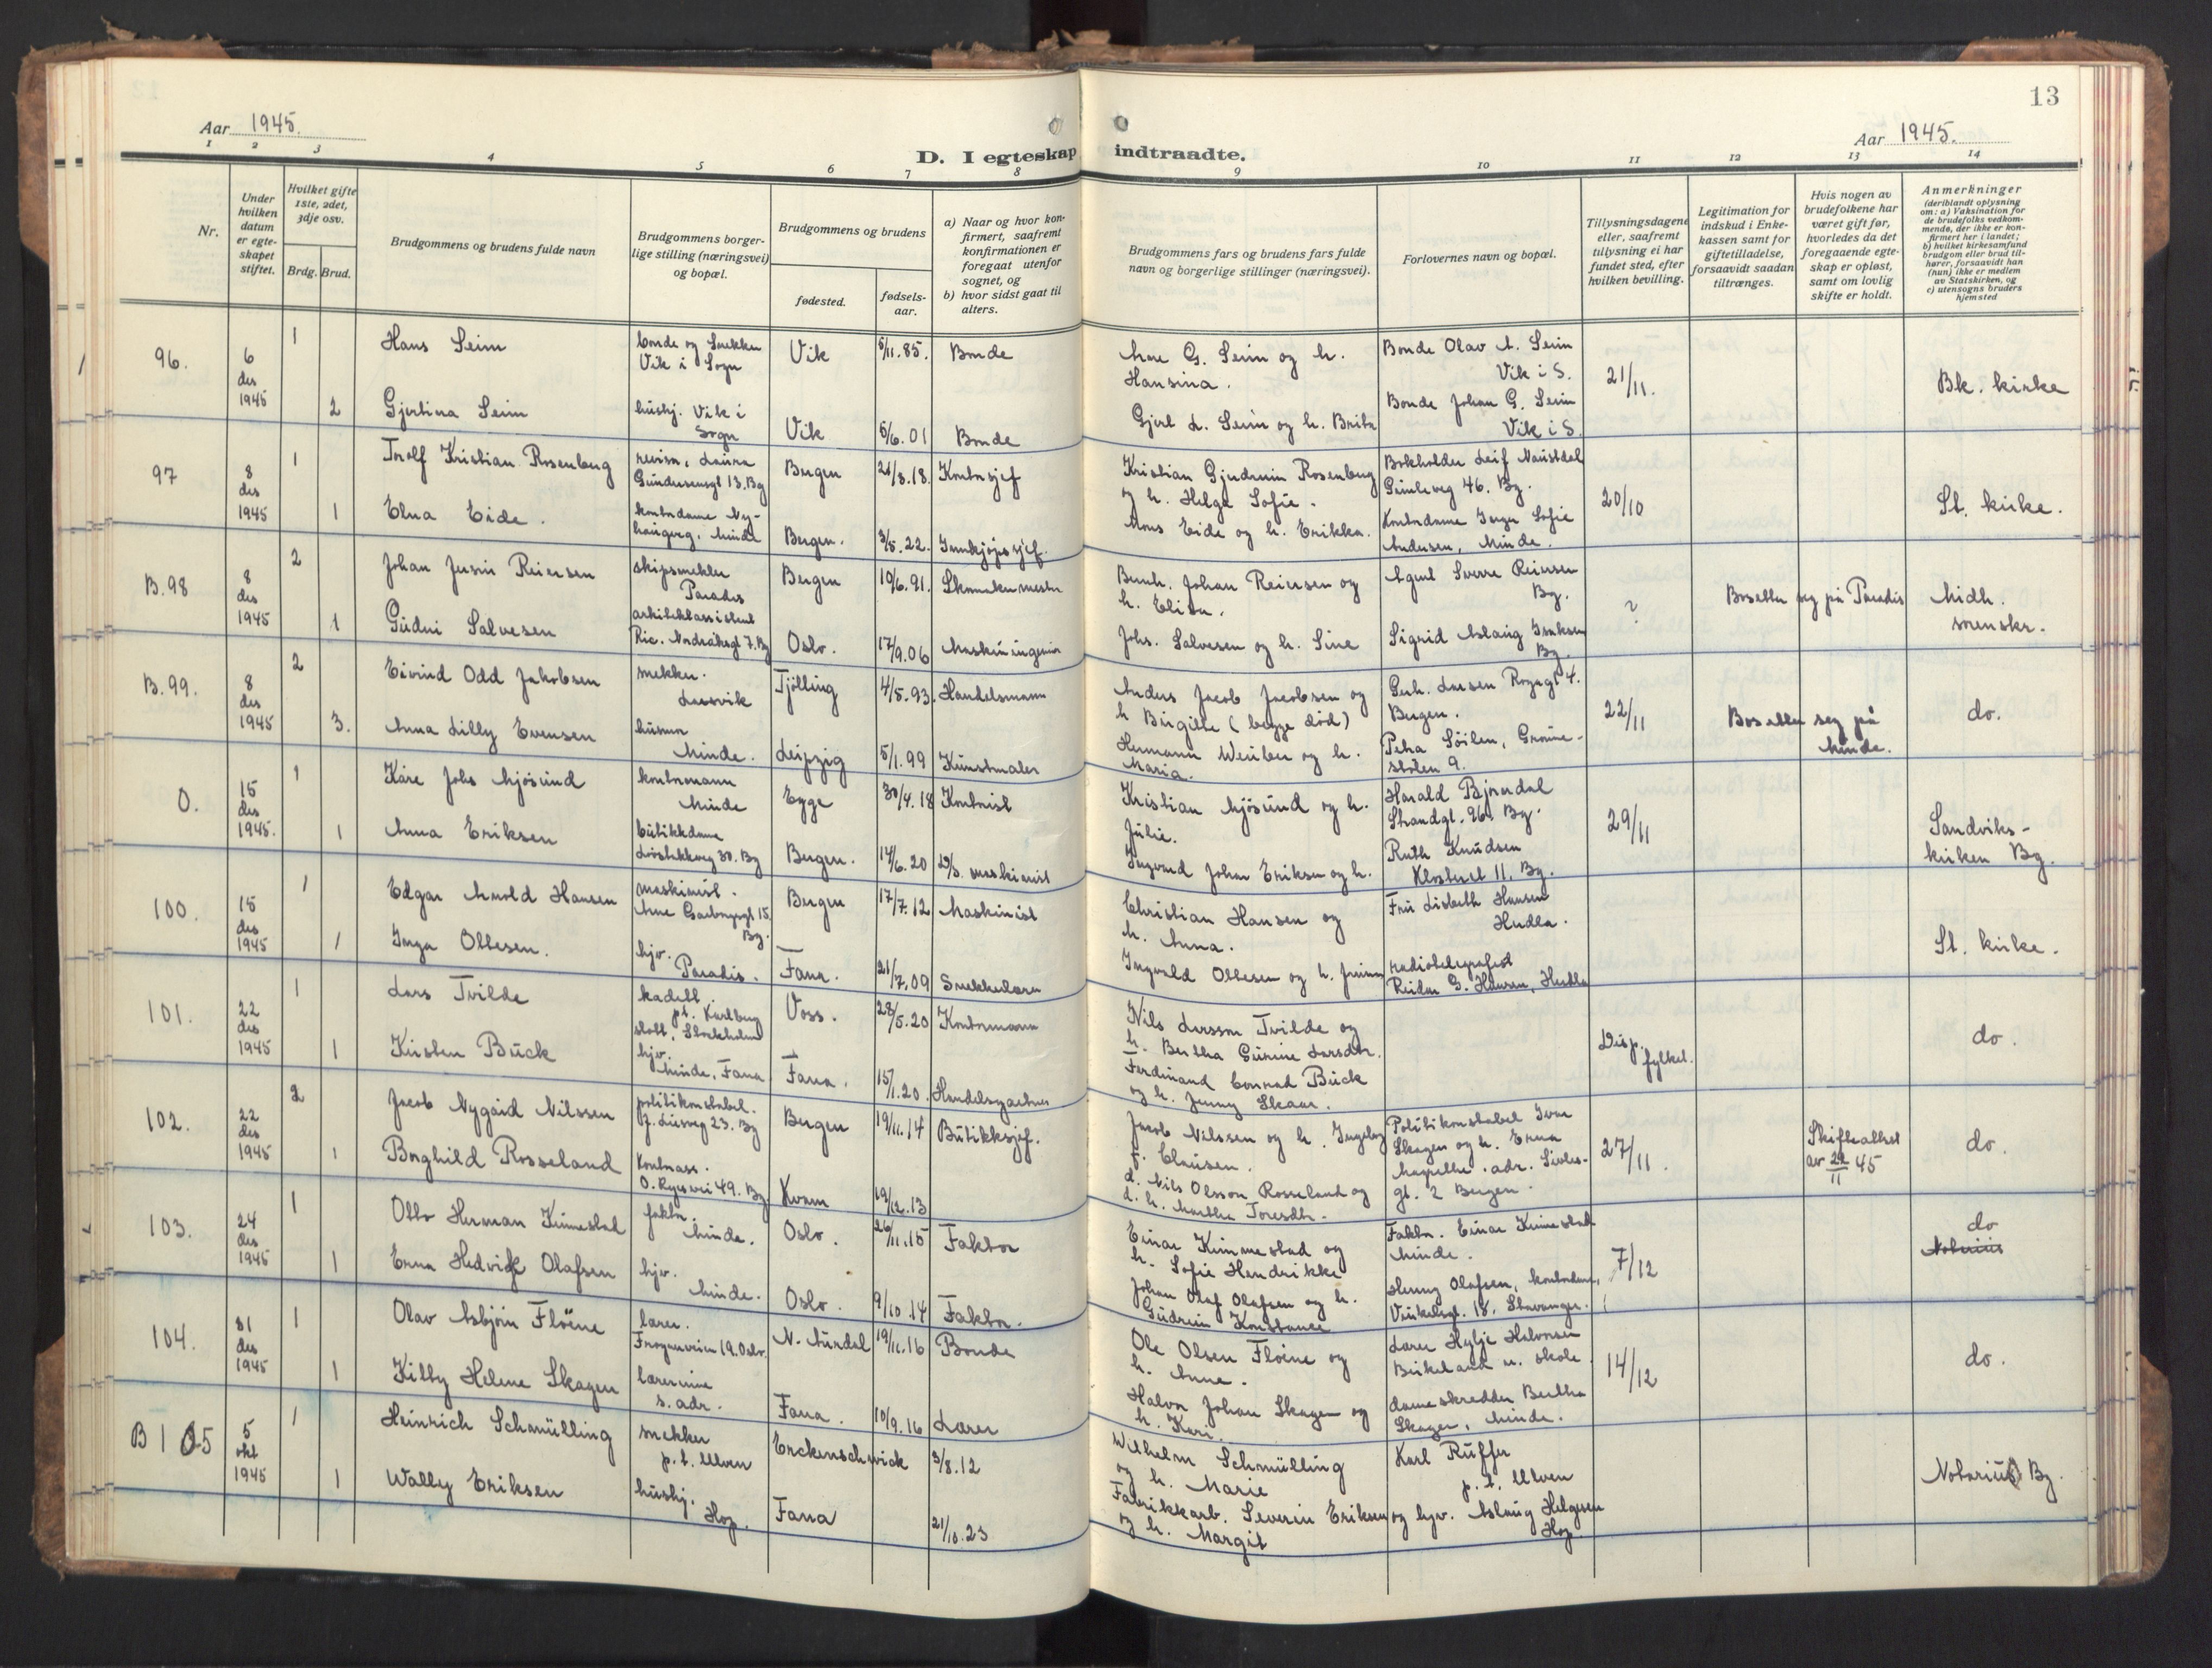 13
Aar 1945.
Aar 1945.
D. I egteskap indtraadte.
1 2 3 4 5 6 7 8 9 10 11 12 13 14
Nr.
Under hvilken datum er egteskapet stiftet.
Hvilket gifte 1ste, 2det, 3dje osv.
Brdg. Brud.
Brudgommens og brudens fulde navn
Brudgommens borgerlige stilling (næringsvei) og bopæl.
Brudgommens og brudens
fødested.
fødselsaar.
a) Naar og hvor konfirmert, saafremt konfirmationen er foregaat utenfor sognet, og
b) hvor sidst gaat til alters.
Brudgommens fars og brudens fars fulde navn og borgerlige stillinger (næringsvei).
Forlovernes navn og bopæl.
Tillysningsdagene eller, saafremt tillysning ei har fundet sted, efter hvilken bevilling.
Legitimation for indskud i Enkekassen samt for giftetilladelse, forsaavidt saadan tiltrænges.
Hvis nogen av brudefolkene har været gift før, hvorledes da det foregaaende egteskap er opløst, samt om lovlig skifte er holdt.
Anmerkninger (deriblandt oplysning om: a) Vaksination for de brudefolks vedkommende, der ikke er konfirmert her i landet; b) hvilket kirkesamfund brudgom eller brud tilhører, forsaavidt han (hun) ikke er medlem av Statskirken, og c) utensogns bruders hjemsted
96. 6 des 1945 1 Hans Seim bonde og Snekker Vik i Sogn Vik 5/11.85. Bonde G. Seim og h. Hansina. Bonde Olav A. Seim Vik i S. 21/11. Bk. kirke
2 Gjertina Seim hushj. Vik i Sogn Vik 5/6.01 Bonde Gjert L. Seim og h. Brita Bonde Johan G. Seim Vik i S.
97 8 des 1945 1 Trolf Kristian Rosenberg revisor, Gundersensgt 13. Bg Bergen 21/8.18. Kontorsjef Kristian Gjudmin Rosenberg og h. Helga Sofie. Bokholder Leif Naustdal Gimleveg 46. Bg. 20/10 St. kirke.
1 Elna Eide. kontordame Nyhaugveg. Minde Bergen. 3/5.22. Innkjøpssjef. Mons Eide og h. Erikka. Kontordame Inger Sofie Andersen, Minde.
B.98 8 des 1945 2 Johan Reiersen skipsmekler Paradis Bergen 19/6.91. Skomakermester Bernh. Johan Reiersen og h. Elisa. Agent Sverre Reiersen Bg. ? Bosetter seg på Paradis Midh. mensks.
1 Gudni Salvesen arkitektassistent Ric. Nordraaksgt 7. Bg Oslo. 17/9.06 Maskiningeniør Johs. Salvesen og h. Sine Sigrid Aslaug Isaksen Bg.
B.99. 8 des 1945 2 Eivind Odd Jakobsen snekker. Larvik Tjölling 4/5.93. Handelsmann Anders Jacob Jacobsen og h Birgitte (begge död) Gerh. Larsen 4. Bergen. 22/11 Bosetter seg på Minde. do.
3. Anna Lilly Evensen husmor Minde. Leipzig 5/1.99 Kunstmaler Hermann Weniber og h. Maria. Petra Söilen, 9.
0. 15 des 1945. 1 Kåre Johs Mjösund kontormann Minde Egge 30/4.18 Kontorist Kristian Mjösund og h. Julie. Harald Bjordal Strandgt. 96. Bg. 29/11 Sandvikskirken Bg.
1 Anna Eriksen butikkdame Lövstakkveg 30. Bg Bergen. 14/6.20 maskinist Ingvard Johan Eriksen og h. Ruth Knudsen Klosteret 11. Bg.
100. 15 des 1945 1 Edgar Arnold Hansen maskinist. Arne Garborgsgt 15. Bg. Bergen 17/7.12 Maskinist Christian Hansen og h. Anna. Fru Lisbeth Hansen Herdla. St. kirke.
1 Inga Ottesen. hjv. Paradis. Fana. 21/7.09 Snekkerlærer Ingvald Ottesen og h. radiotelegrafist Reidar G. Hansen, Herdla
101. 22 des 1945 1 Lars Tvilde kadett. pt. Karlberg slott, Stockholm Voss. 28/5.20 Kontormann Nils Larsson Tvilde og h. Bertha Gurine Larsdtr. Disp. fylket. do.
1 Kirsten Buck hjv. Minde, Fana Fana. 15/1.20. Handelsgartner Ferdinand Conrad Buck og h. Jenny Skaar.
102. 22 des 1945 2 Jacob Nygaid Nilssen politikonstabel. 23. Bg Bergen 19/11.14 Butikksjef. Jacob Nilssen og h. Ingeborg f. Clausen. Politikonstabel Ivar Skagen og h. Erna Magrethe. adr. gt. 2 Bergen. 27/11. Skifteattest av 22/11 45 do.
1 Borghild Rosseland Kontorass. O. Ryesvei 49. Bg. Kvam 19/12.13 d. Nils Olsson Rosseland og d. h. Martha Toresdtr.
103. 24 des 1945 1 Otto Herman Kimestad faktor. Minde. Oslo. 26/11.15 Faktor Einar Kimmestad og h. Sofie Hendrikke Faktor. Einar Kimestad Minde. 7/12 do Notarius
1 Erna Hedvik Olafsen hjv. Minde. Oslo. 9/10.14 Faktor. Johan Olaf Olafsen og h. Gudrun Konstance Henny Olafsen, kontordame, 18, Stavanger.
104. 31 des 1945 1 Olav Asbjörn Flöine lærer. Frognerveien 19. Oslo. N. Aurdal 19/11.16 Bonde Ole Olsen Floine og h. Anne. Lærer Hylje Halvorsen Birkeland u. skole 14/12 do.
1 Kitty Helene Skagen lærerinne s. adr. Fana. 10/9.16 Lærer Halvor Johan Skagen og h. Kari. dameskredder Bertha Skagen, Minde.
B 105 5 okt 1945 1 Heinrich Schmülling snekker p.t. Ulven Erckenschwick 3/8.12 Wilhelm Schmülling og h. Marie Karl Rüffer p.t. Ulven Notarius Bg.
1 Wally Eriksen hushj. Hop. Fana 21/10.23 Fabrikkarb. Severin Eriksen og h. Margit og hjv. Aslaug Helgesen Hop.